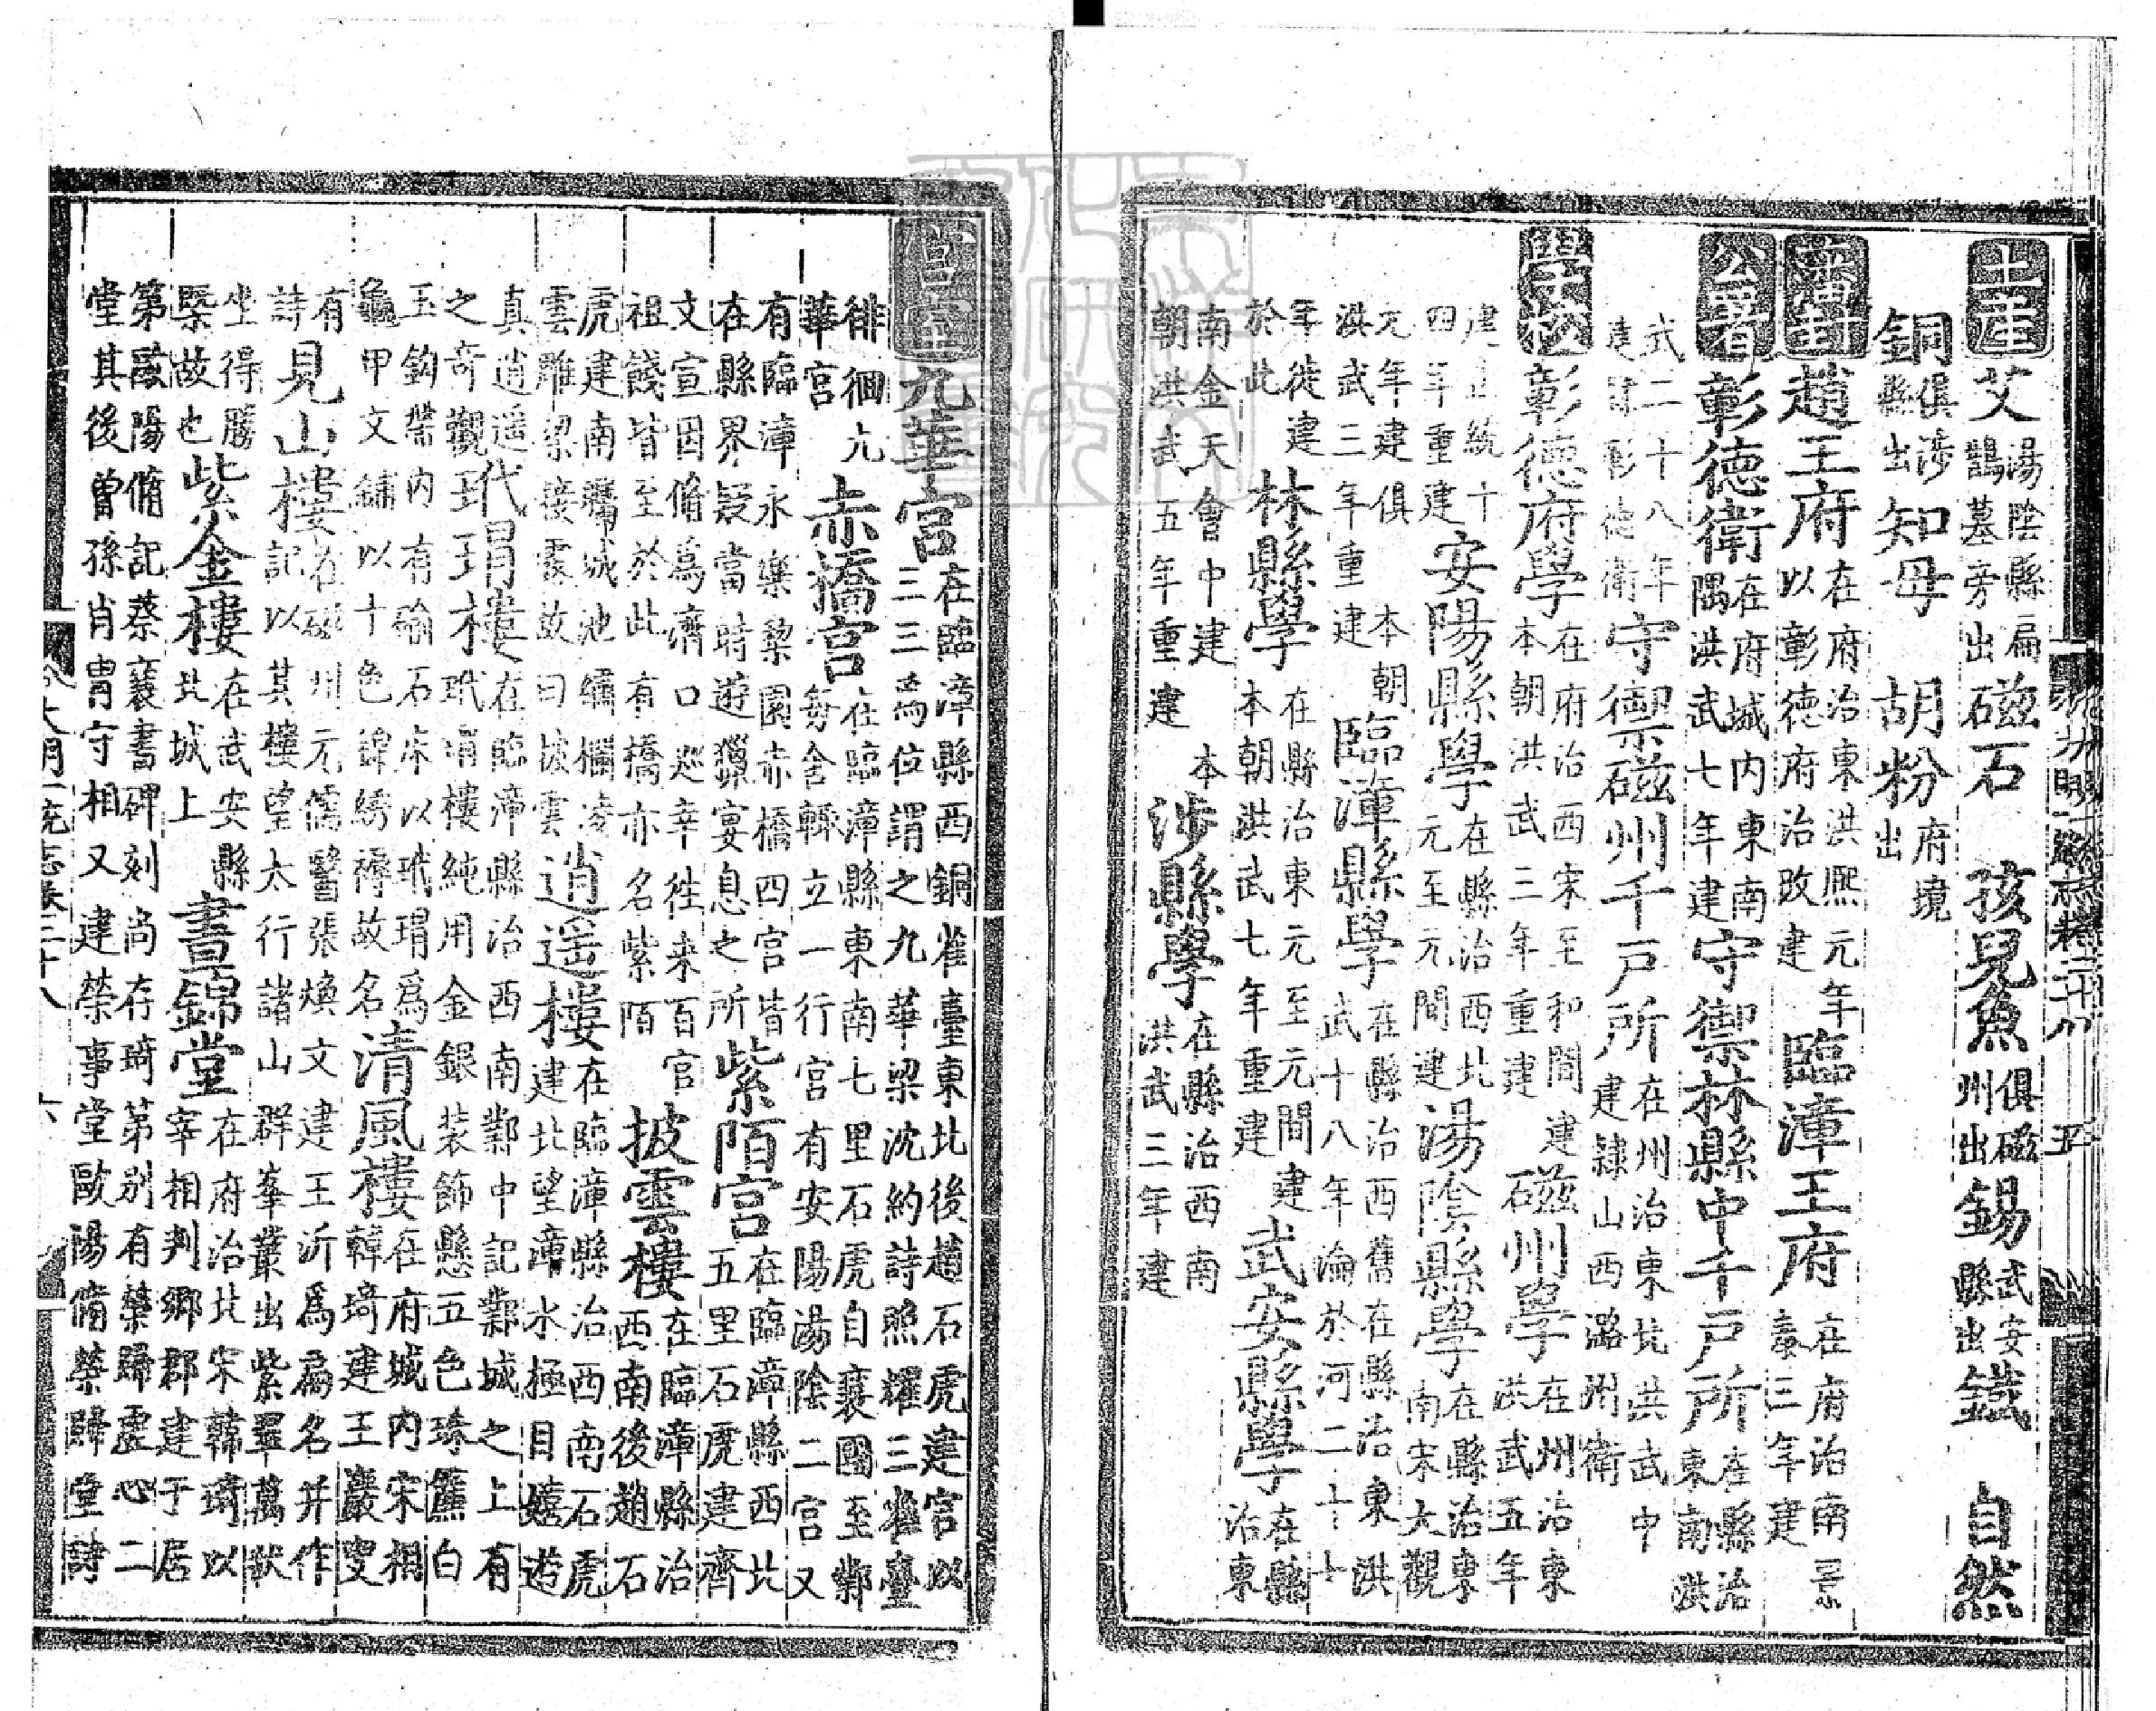 土産艾湯陰縣扁鵲墓旁出磁石 孩兒魚俱磁州出錫武安縣出鐵 自然
銅俱涉縣出知母 胡粉府境出
藩封趙王府在府治東洪熙元年以彰德府治改建 臨漳王府在府治南景泰三年建
公署彰德衛在府城内東南隅洪武七年建守禦林縣中千戶所在縣治東南洪
武二十八年建隸彰德衛守禦磁州千戶所在州治東北洪武中建隸山西潞州衛
學校彰德府學在府治西宋至和間建本朝洪武三年重建 磁州學在州治東洪武五年
建正統十四年重建安陽縣學在縣治西北元至元間建湯陰縣學在縣治東南宋大觀
元年建俱洪武三年重建 本朝臨漳縣學在縣治西舊在縣治東洪武十八年淪於河二十七
年徙建於此 林縣學在縣治東元至元間建本朝洪武七年重建 武安縣學在縣治東
南金天會中建本朝洪武五年重建 涉縣學在縣治西南洪武三年建
宮室九華宮在臨漳縣西銅雀臺東北後趙石虎建宮以三三爲位謂之九華梁沈約詩照耀三雀臺
徘徊九華宮 赤橋宮在臨漳縣東南七里石虎自襄國至鄴每舍輒立一行宮有安陽湯陰二宮又
有臨漳永樂黎園赤橋四宮皆在縣界疑當時遊獵宴息之所紫陌宮在臨漳縣西北五里石虎建齊
文宣因脩爲濟口巡幸往來百官祖餞皆至於此有橋亦名紫陌 披雲樓在臨漳縣治西南後趙石
虎建南矚城池繡欄凌雲雕梁接霞故曰披雲逍遙樓在臨漳縣治西南石虎建北望漳水極目嬉遊
真逍遙之奇觀玳瑁樓在臨漳縣治西南鄴中記鄴城之上有玳瑁樓純用金銀装飾懸五色珠簾白
玉鈎帶内有碖石床以玳瑁爲龜甲文鋪以十色錦綉褥故名清風樓在府城内宋相韓琦建王巖叟
有詩見山樓在磁州元儒醫張煥文建王沂爲扁名并作記以其樓望太行諸山群峯叢出紫翠萬狀
坐得勝槩故也紫金樓在武安縣北城上 晝錦堂在府治北宋韓琦以宰相判鄉郡建于居
第歐陽脩記蔡襄書碑刻尚存琦第別有榮歸虛心二
堂其後曾孫肖胄守相又建榮事堂歐陽脩榮歸堂詩